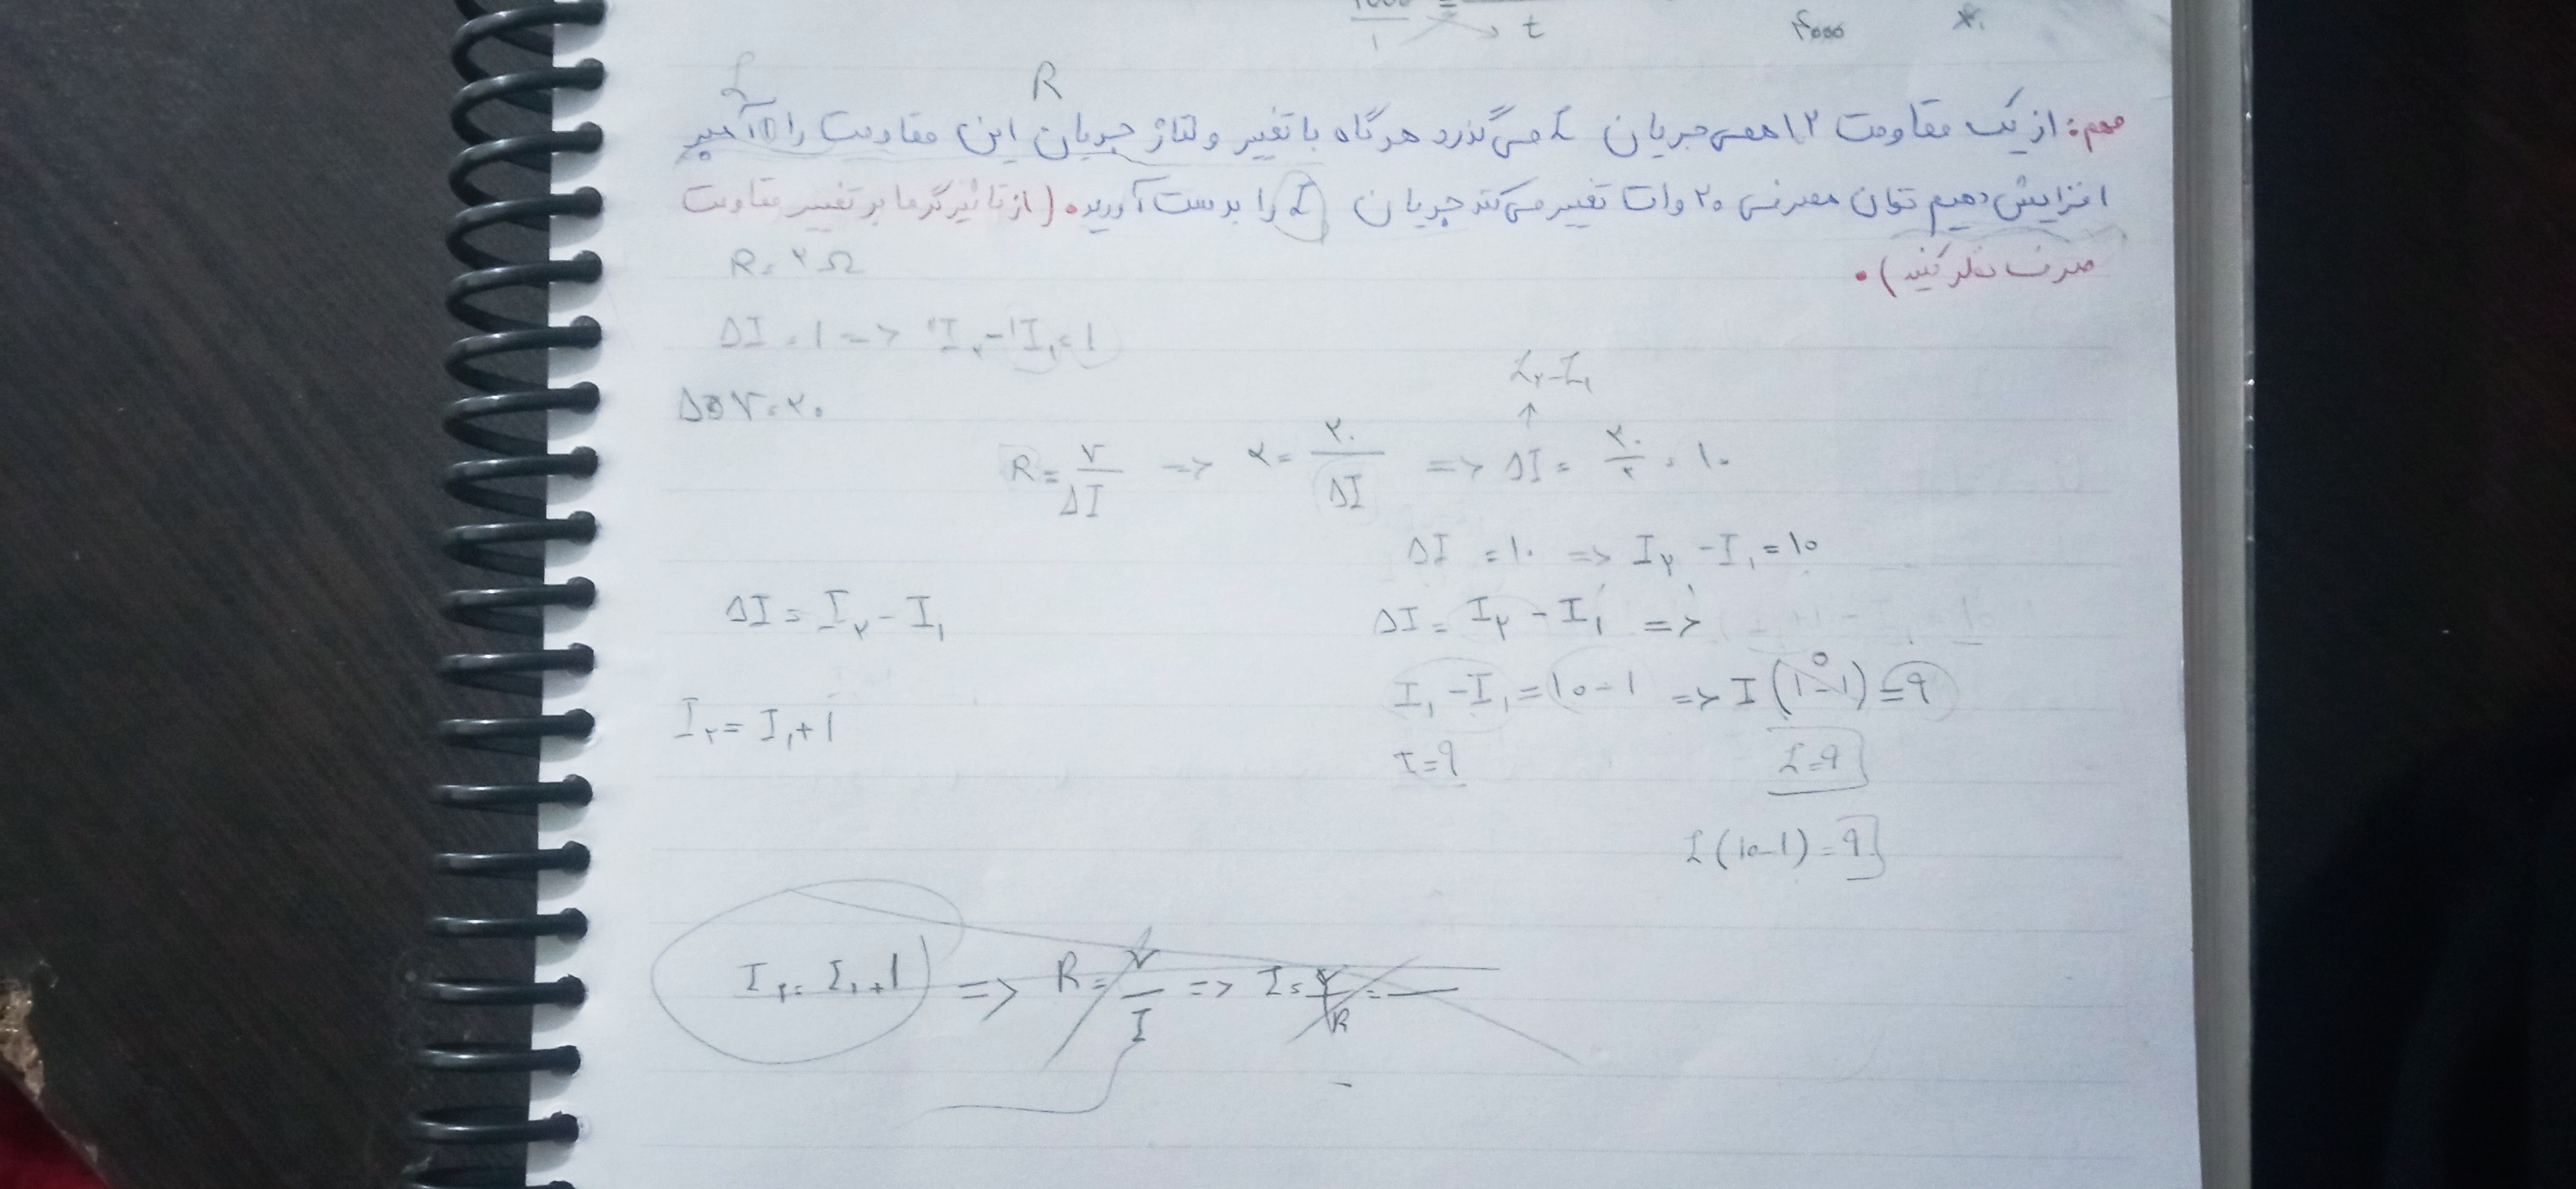 ۱ t ۴۰۰۰
L R
مهم: از یک مقاومت ۲ اهمی جریان I می‌گذرد هرگاه با تغییر ولتاژ جریان این مقاومت را ۱ آمپر
افزایش دهیم توان مصرفی ۲۰ وات تغییر می‌کند جریان I را بدست آورید. (از تاثیر گرما بر تغییر مقاومت
صرف نظر کنید).
R = ۲Ω
ΔI = ۱ => I₂ - I₁ = ۱
I₂ - I₁
ΔV = ۲۰
R = V/ΔI => ۲ = ۲۰/ΔI => ΔI = ۲۰/۲ = ۱۰
ΔI = ۱۰ => I₂ - I₁ = ۱۰
ΔI = I₂ - I₁
ΔI = I₂ - I₁ =>
I₁ - I₁ = ۱۰ - ۱ => I(۱-۱) = ۹
I₂ = I₁ + ۱
I = ۹ I = ۹
I(۱۰-۱) = ۹
I₂ = I₁ + ۱ => R = V/I => I = V/R =